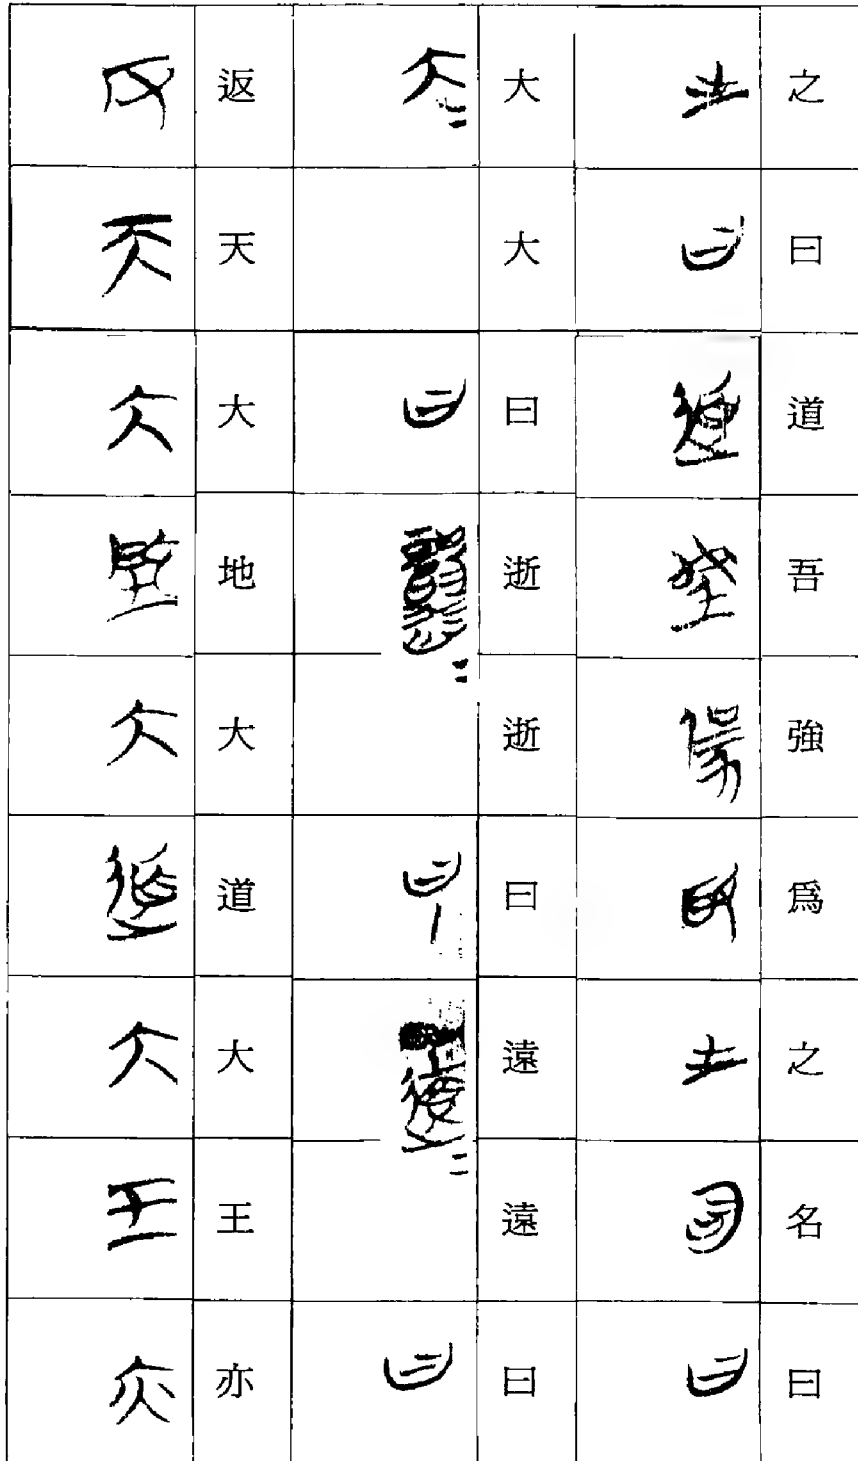 之曰道吾強爲之名曰
大大曰逝逝曰遠遠曰
返天大地大道大王亦